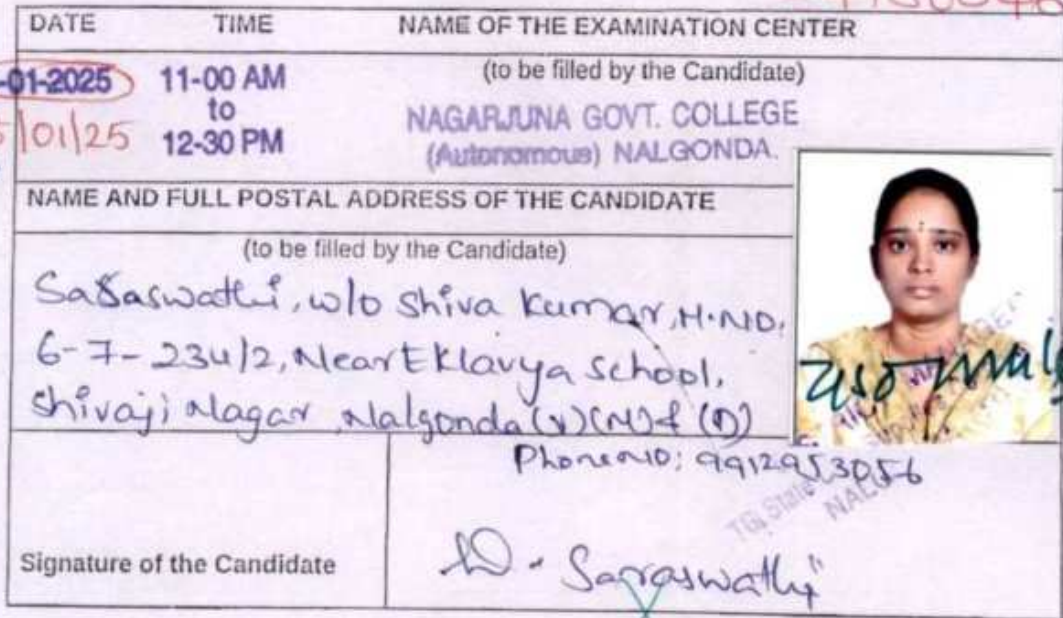 DATE TIME NAME OF THE EXAMINATION CENTER
-01-2025 11-00 AM (to be filled by the Candidate)
to NAGARJUNA GOVT. COLLEGE
/01/25 12-30 PM (Autonomous) NALGONDA.
NAME AND FULL POSTAL ADDRESS OF THE CANDIDATE
(to be filled by the Candidate)
Saraswathi, w/o Shiva Kumar, H.NO.
6-7-234/2, Near Eklavya School,
Shivaji Nagar, Nalgonda (V) (M) & (D)
Phone NO: 9912953056
TG State
NAL
Signature of the Candidate D. Saraswathi